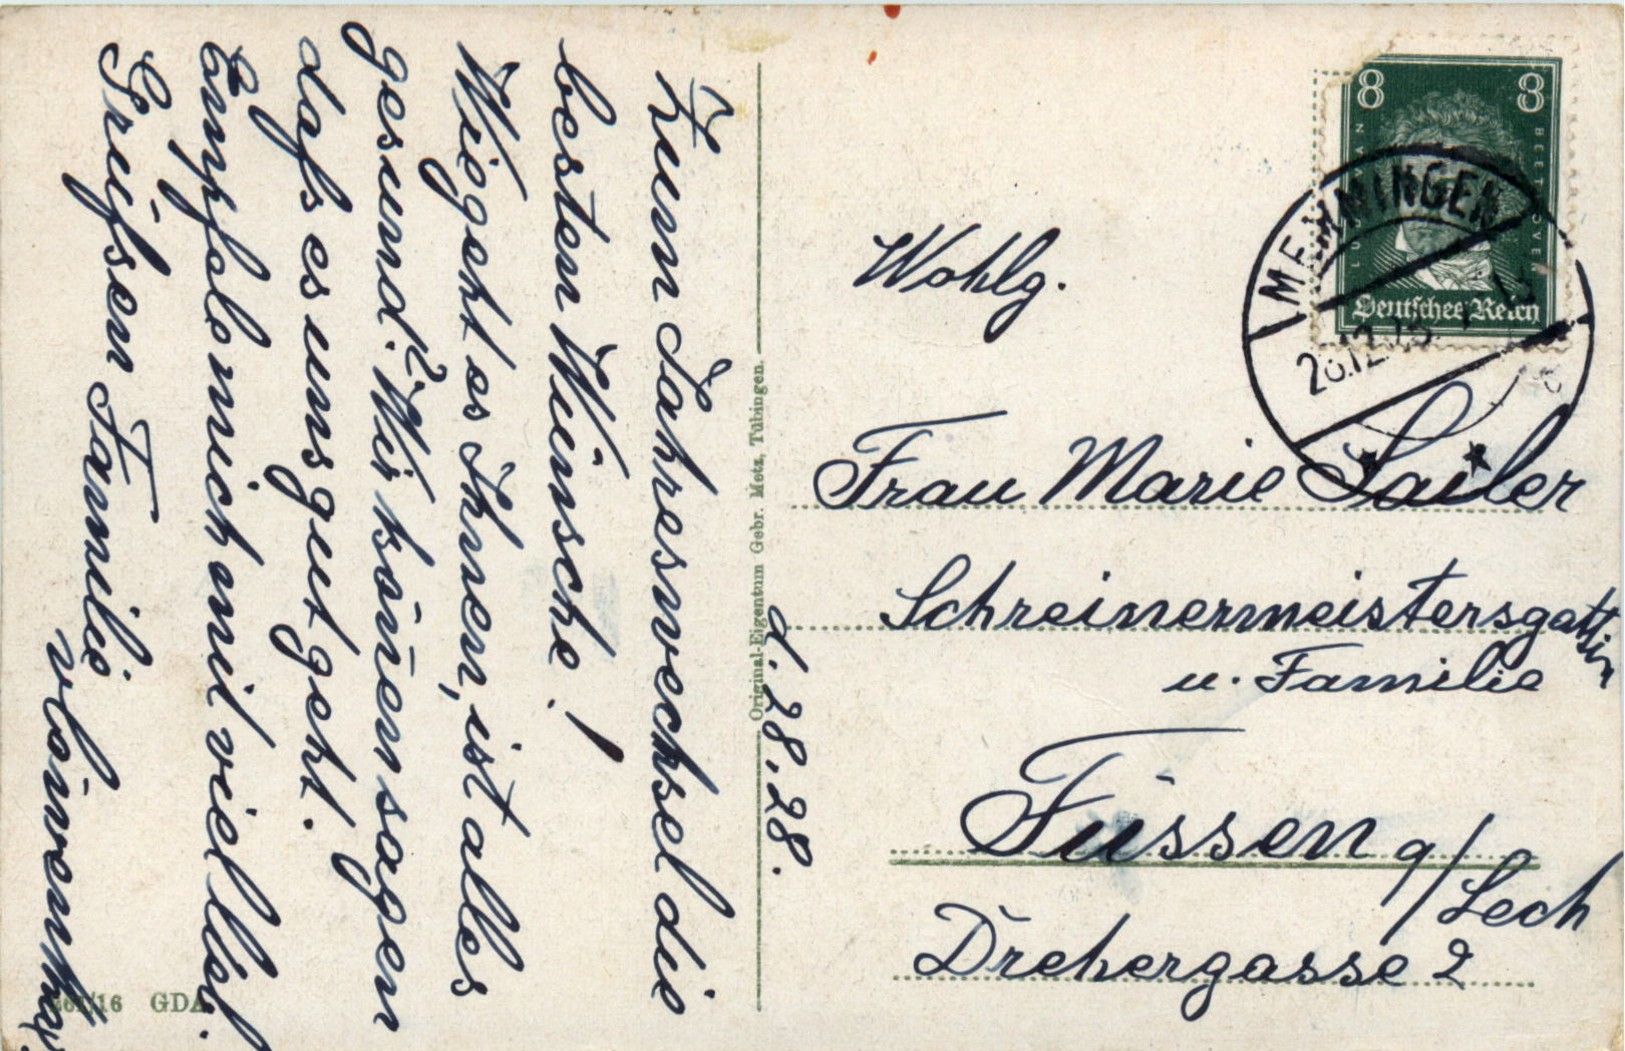 Zum Jahreswechsel die
besten Wünsche!
Wie geht es Ihnen, ist alles
gesund? Wir können sagen
dafs es uns gut geht.
Empfele mich mit viel lb.
Grüfsen Familie
d. 28. 28.
Original-Eigentum Gebr. Metz, Tübingen.
/16 GDA
8 8
LUDWIG VAN BEETHOVEN
Deutsches Reich
MEMMINGEN
Wohlg.
Frau Marie Sailer
Schreinermeistersgattin
u. Familie
Füssen a/Lech
Drehergasse 2